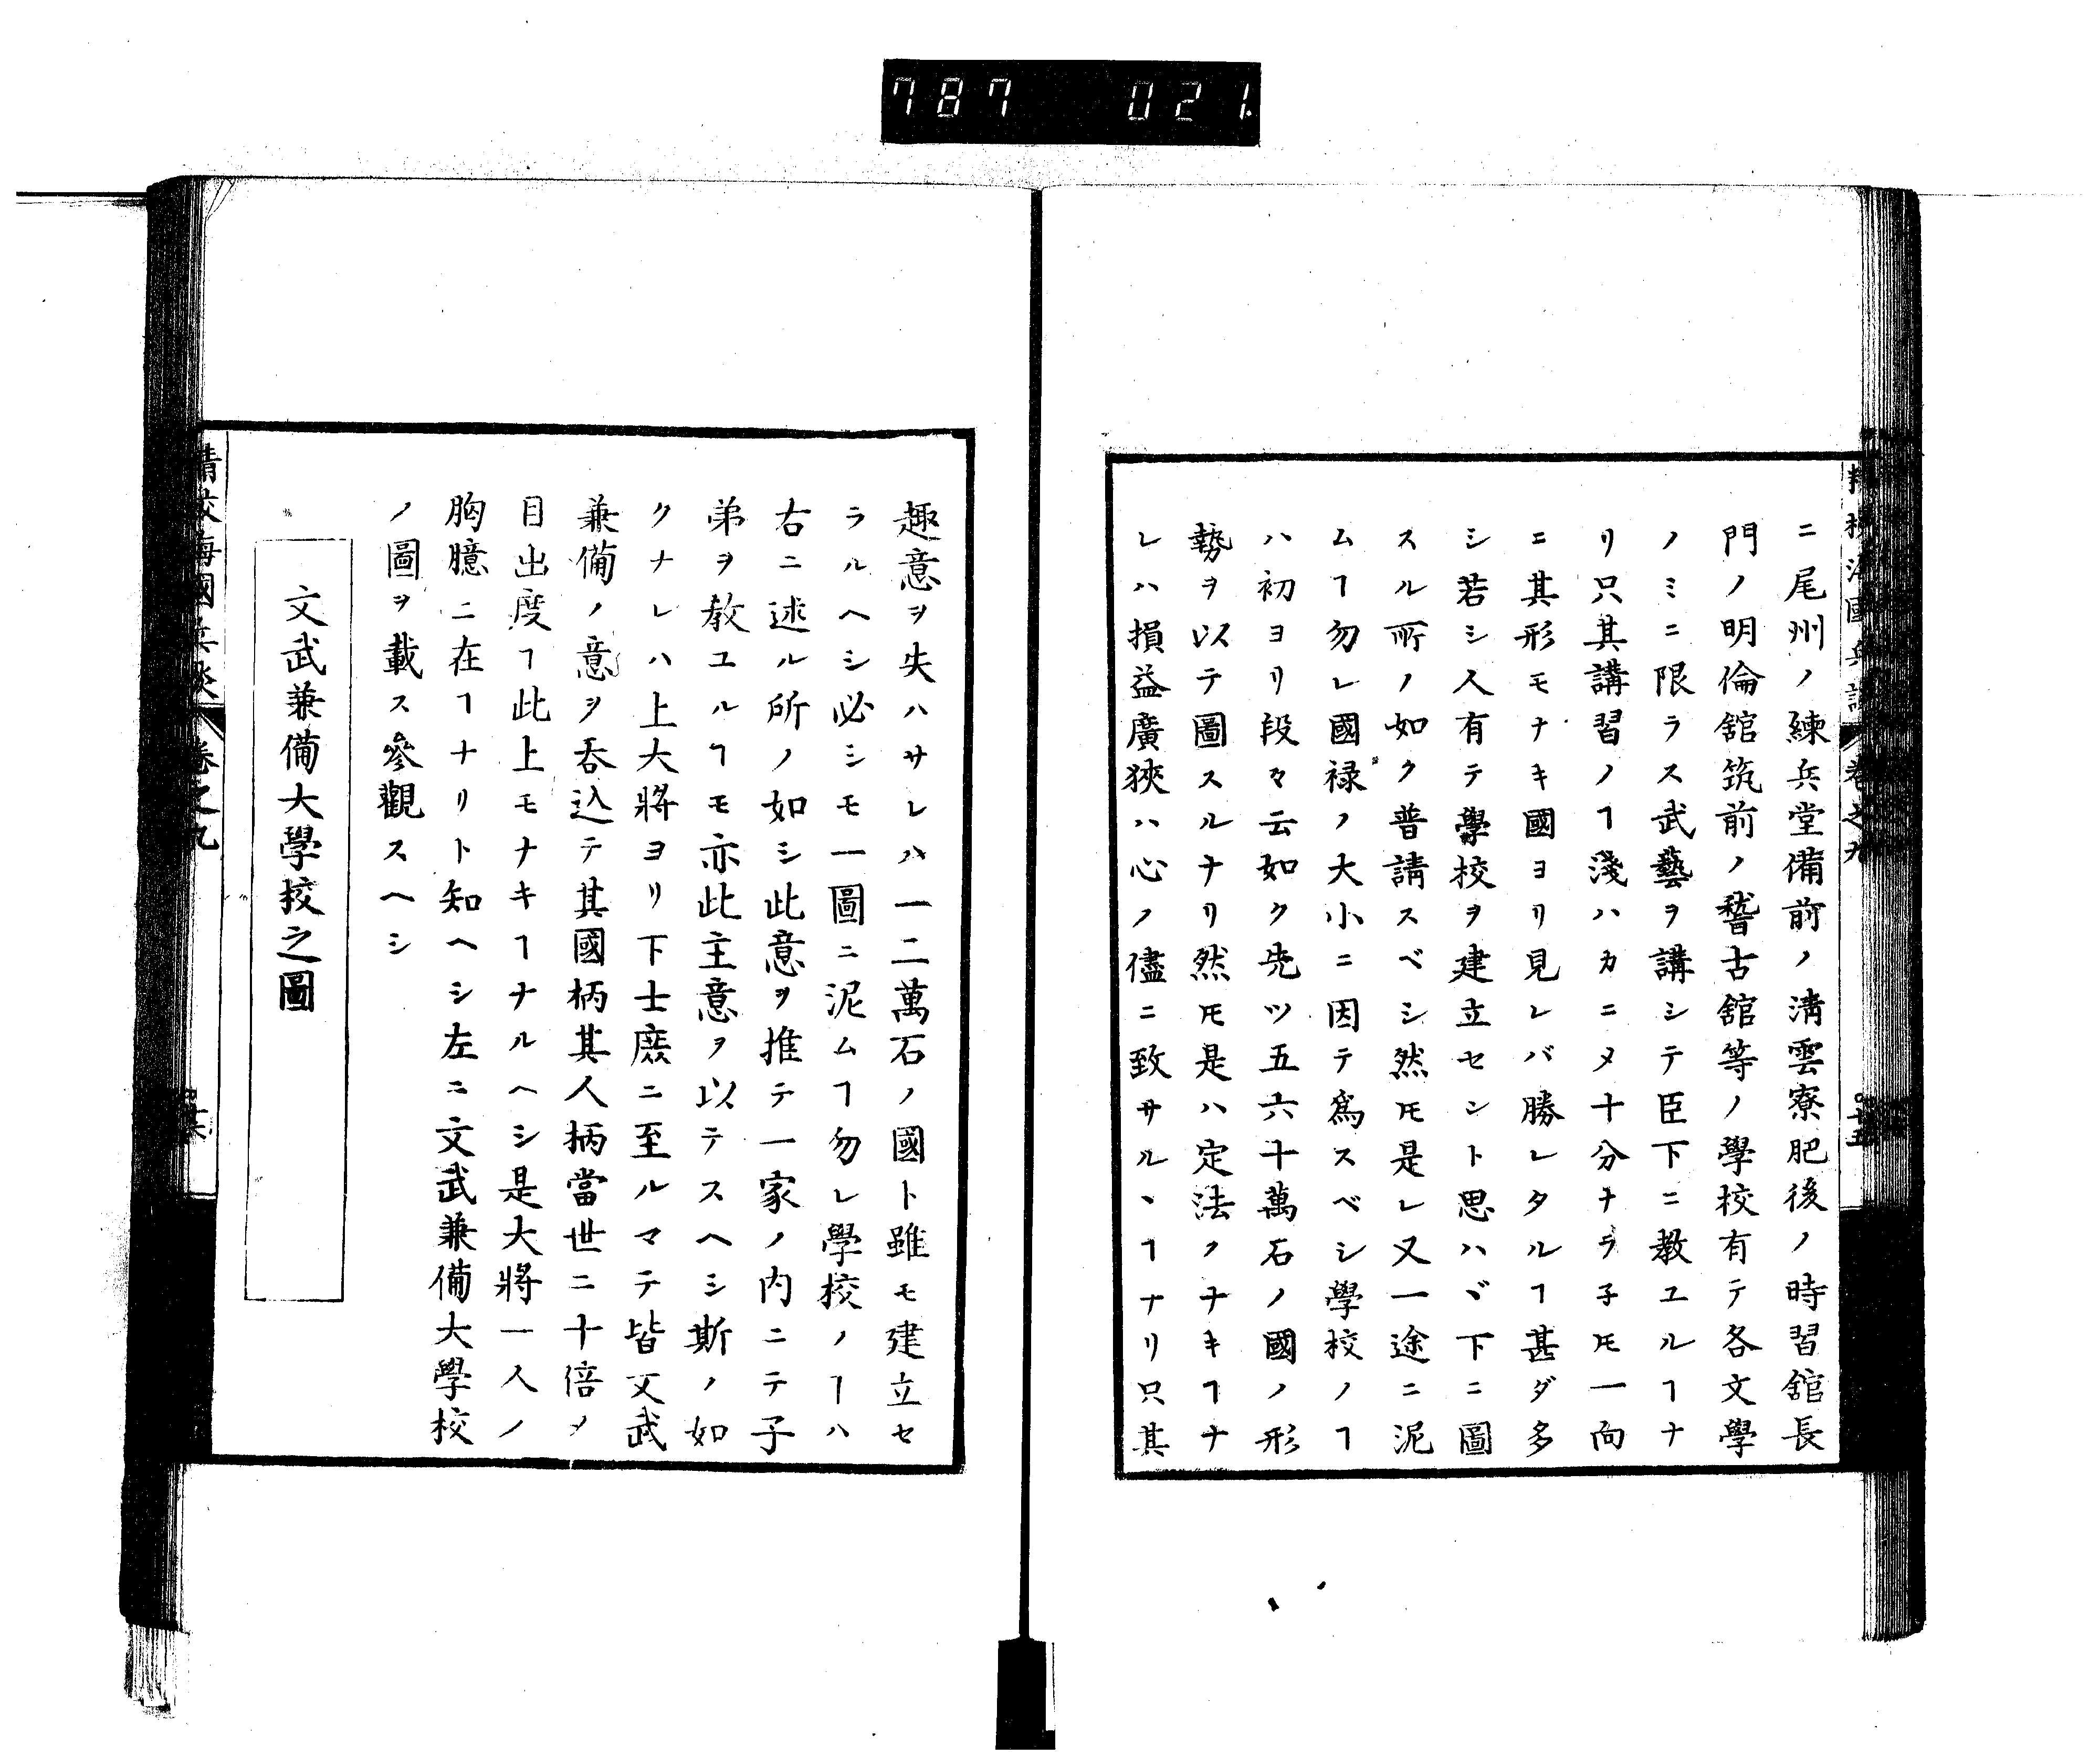 787 021
ニ尾州ノ練兵堂備前ノ淸雲寮肥後ノ時習舘長
門ノ明倫舘筑前ノ稽古舘等ノ學校有テ各文學
ノミニ限ラス武藝ヲ講シテ臣下ニ教ユルヿナ
リ只其講習ノヿ淺ハカニメ十分ナラ子𪜈一向
ニ其形モナキ國ヨリ見レバ勝レタルヿ甚ダ多
シ若シ人有テ學校ヲ建立セント思ハヾ下ニ圖
スル所ノ如ク普請スベシ然𪜈是レ又一途ニ泥
ムヿ勿レ國祿ノ大小ニ因テ爲スベシ學校ノヿ
ハ初ヨリ段々云如ク先ツ五六十萬石ノ國ノ形
勢ヲ以テ圖スルナリ然𪜈是ハ定法クナキヿナ
レハ損益廣狹ハ心ノ儘ニ致サルヽヿナリ只其
趣意ヲ失ハサレハ一二萬石ノ國ト雖モ建立セ
ラルヘシ必シモ一圖ニ泥ムヿ勿レ學校ノヿハ
右ニ述ル所ノ如シ此意ヲ推テ一家ノ内ニテ子
弟ヲ敎ユルヿモ亦此主意ヲ以テスヘシ斯ノ如
クナレハ上大將ヨリ下士庶ニ至ルマテ皆文武
兼備ノ意ヲ呑込テ其國柄其人柄當世ニ十倍メ
目出度ヿ此上モナキヿナルヘシ是大將一人ノ
胸臆ニ在ヿナリト知ヘシ左ニ文武兼備大學校
ノ圖ヲ載ス參觀スヘシ
文武兼備大學校之圖
精校海國兵談 卷之九